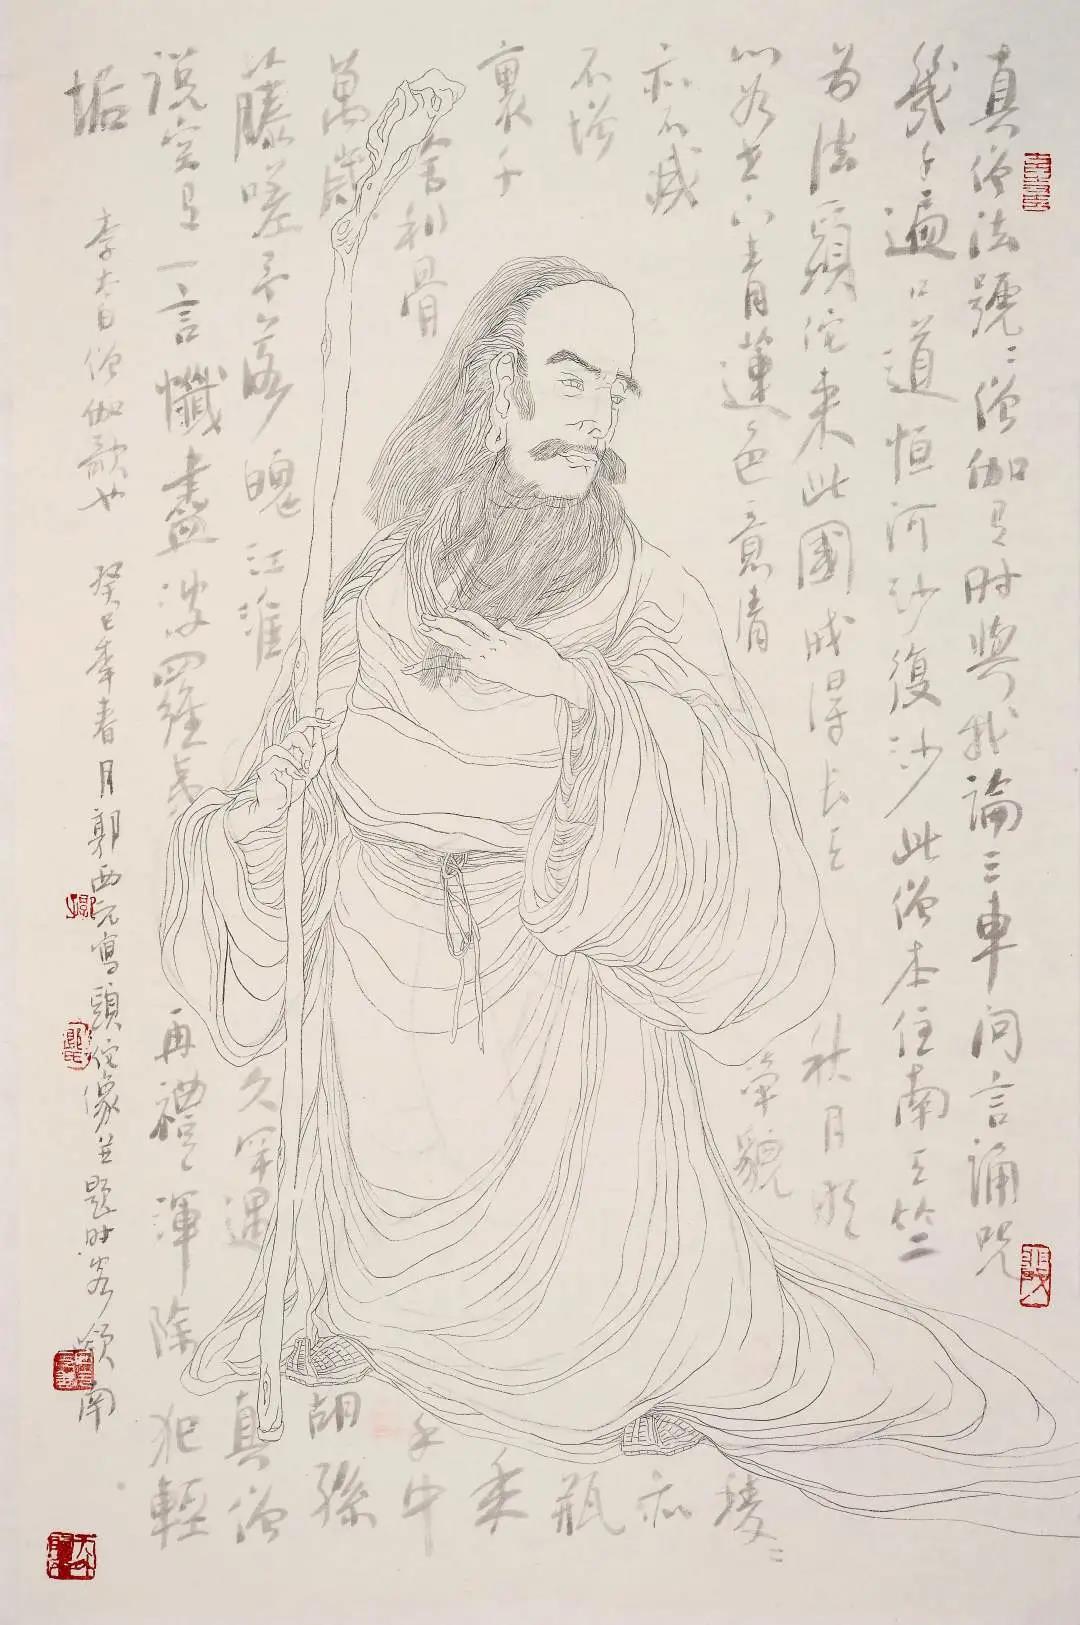 真僧法號〻僧伽有时與我論三車问言誦咒
幾千遍口道恒河沙復沙此僧本住南天竺
为法頭陀来此國戒得长天秋月明
心如世上青蓮色意清淨貌稜〻
亦不减亦
不增瓶
裏千年
舍利骨手中
萬歲胡孫
藤嗟予落魄江淮久罕遇真僧
説空有一言懺盡波羅夷再禮渾除犯輕
垢
李太白僧伽歌也 癸巳年春月郭西元寫頭陀像並題时客嶺南